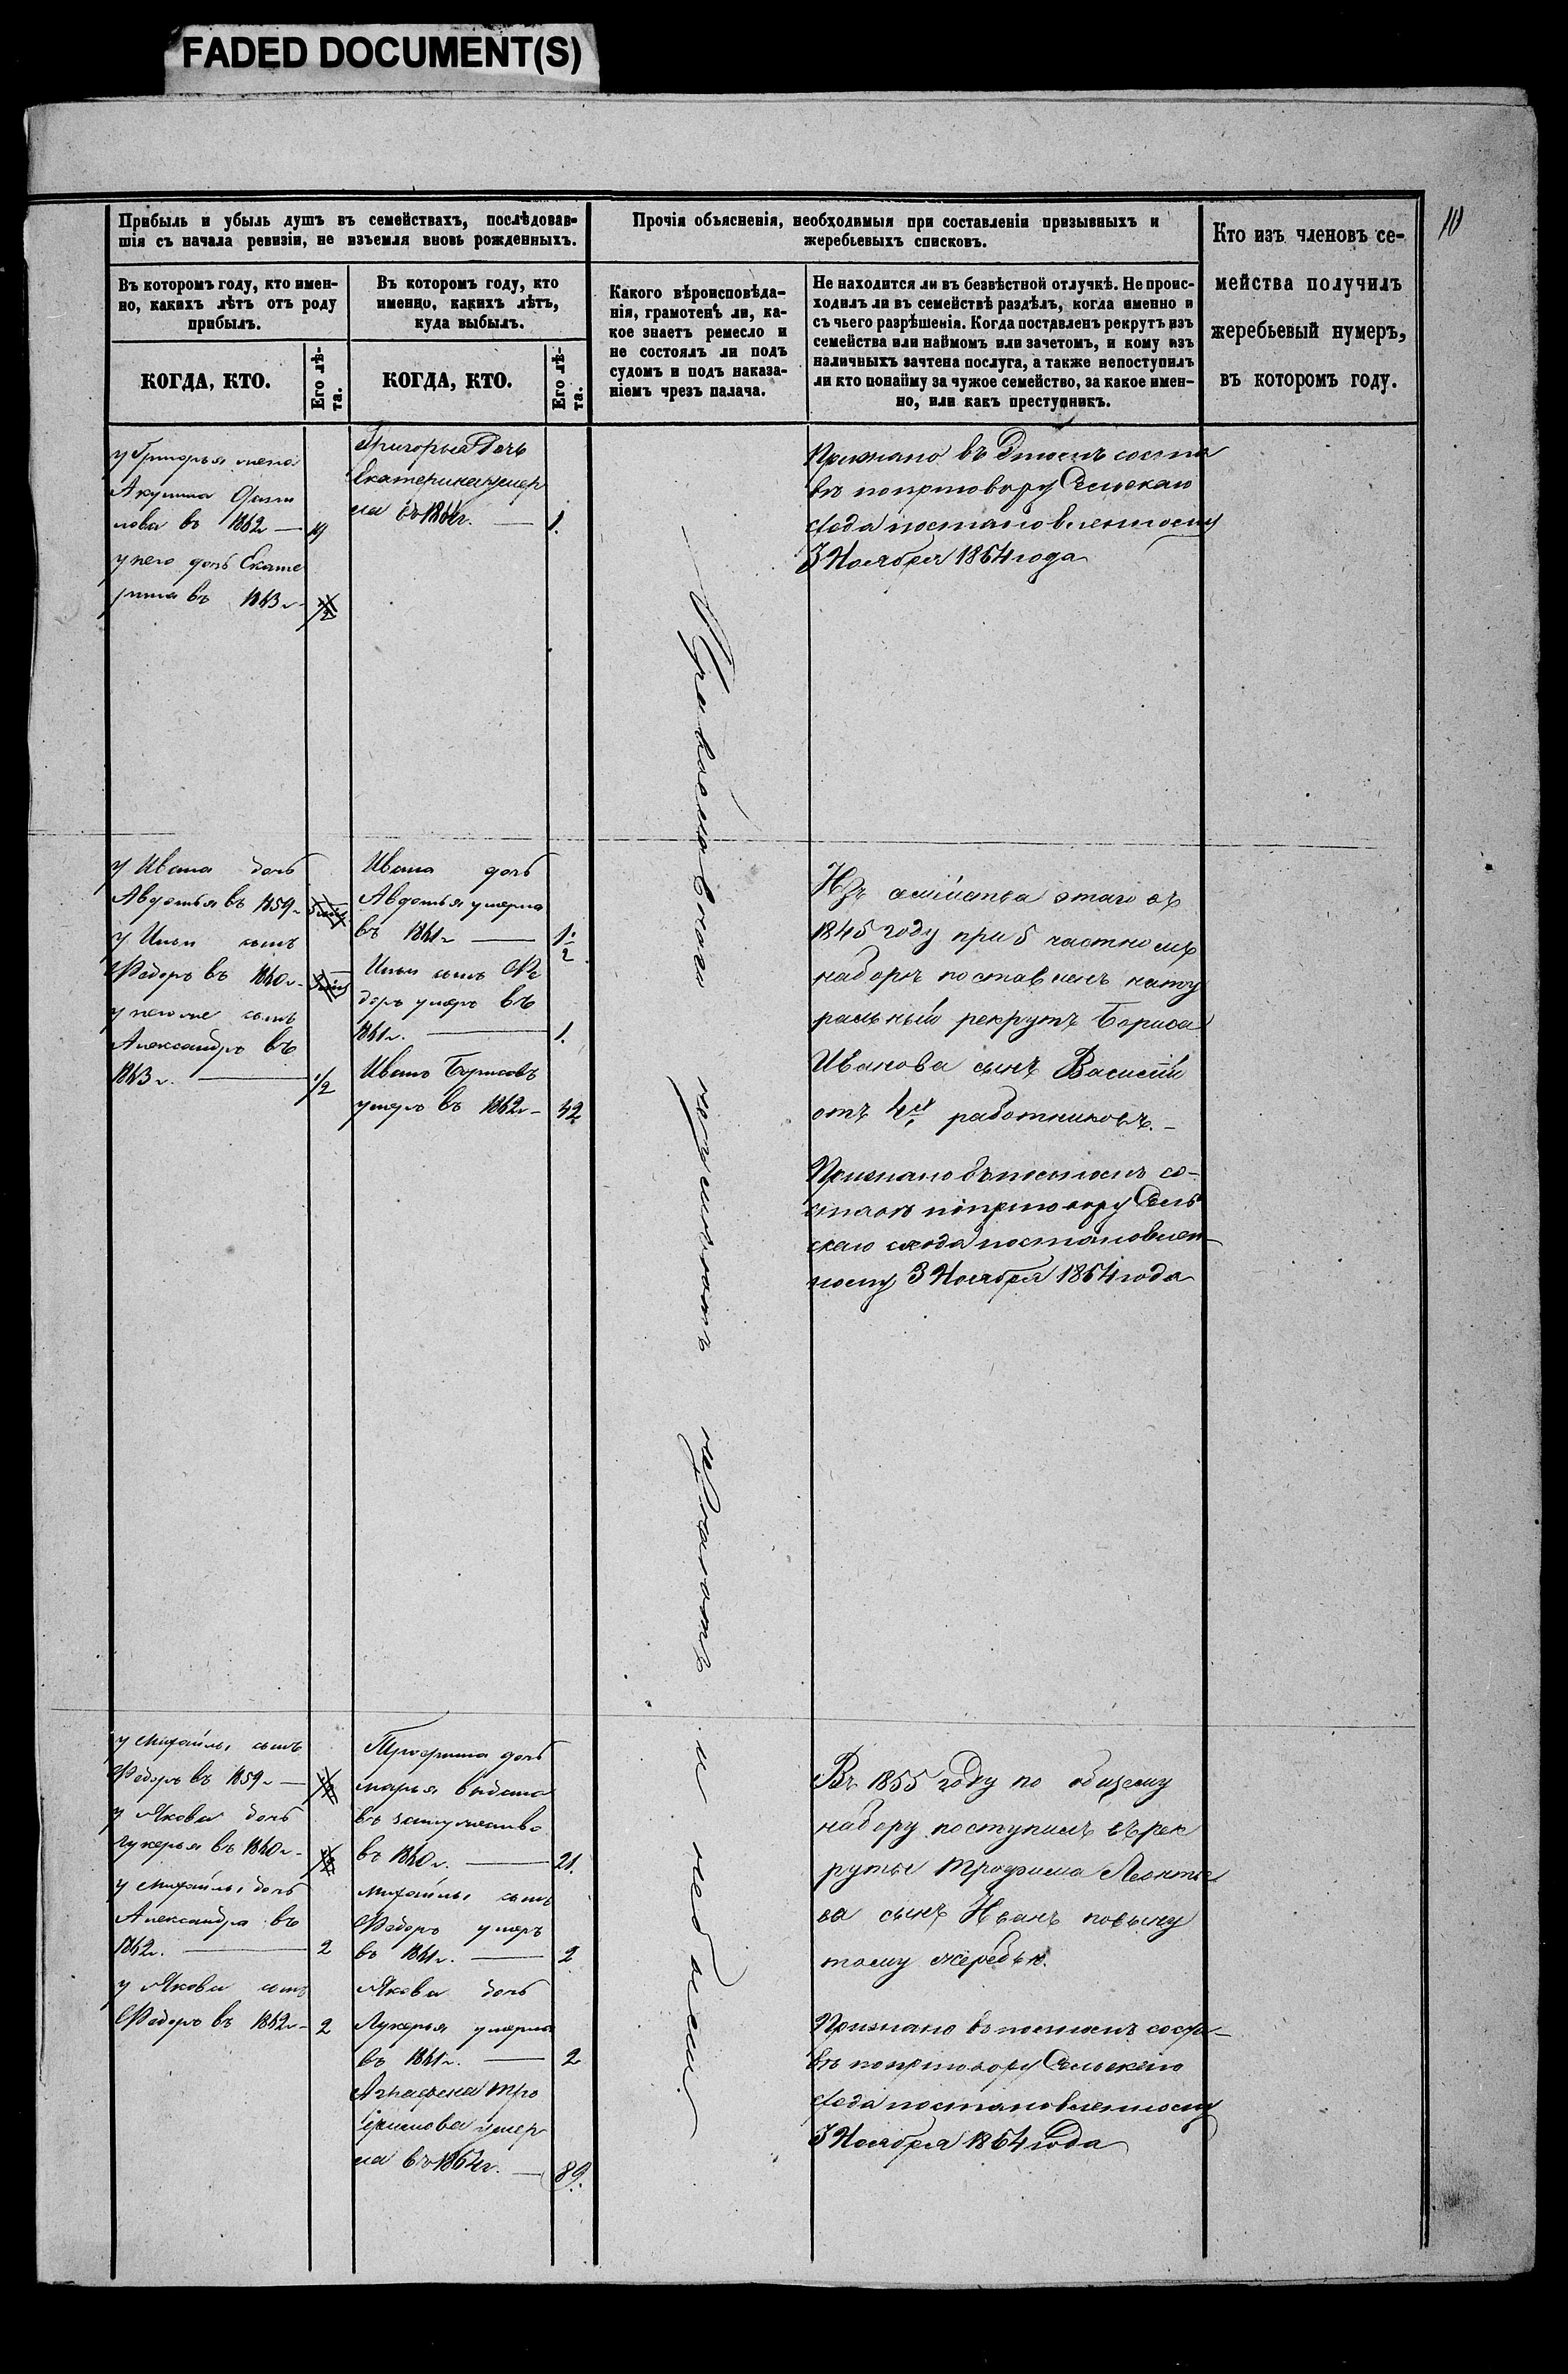 FADED DOCUMENT(S)
10
Прибыль и убыль душъ въ семействахъ, послѣдовав-
шія съ начала ревизіи, не изъемля вновь рожденныхъ.
Прочія объясненія, необходимыя при составленіи призывныхъ и
жеребьевыхъ списковъ.
Кто изъ членовъ се-
мейства получилъ
жеребьевый нумеръ,
въ которомъ году.
Въ которомъ году, кто имен-
но, какихъ лѣтъ отъ роду
прибылъ.
Въ которомъ году, кто
именно, какихъ лѣтъ,
куда выбылъ.
Какого вѣроисповѣда-
нія, грамотенъ ли, ка-
кое знаетъ ремесло и
не состоялъ ли подъ
судомъ и подъ наказа-
ніемъ чрезъ палача.
Не находится ли въ безвѣстной отлучкѣ. Не проис-
ходилъ ли въ семействѣ раздѣлъ, когда именно и
съ чьего разрѣшенія. Когда поставленъ рекрутъ изъ
семейства или наймомъ или зачетомъ, и кому изъ
наличныхъ зачтена послуга, а также непоступилъ
ли кто понайму за чужое семейство, за какое имен-
но, или какъ преступникъ.
КОГДА, КТО.
Его лѣ-
та.
КОГДА, КТО.
Его лѣ-
та.
у Григорья жена
Акулина
лова въ 1862 —
у него дочь Екате
рина въ 1863 г.
Григорья Дочь
Екатерина умер
ла въ 1864 г. — 1.
Признано въ Этомъ соста
вѣ поприговору Сельскаго
схода постановленному
3 Ноября 1864 года
у Ивана дочь
Авдотья въ 1859 г.
у Ильи сынъ
Федоръ въ 1860 г.
у него же сынъ
Александръ въ
1863 г. — 1/2
Ивана дочь
Авдотья умерла
въ 1861 г. — 1 1/2
Ильи сынъ Фе
доръ умеръ въ
1861 г. — 1.
Иванъ Борисовъ
умеръ въ 1862 г. — 42
Изъ семейства этаго въ
1845 году при 5 частномъ
наборѣ поставленъ нату
ральный рекрутъ Бориса
Иванова сынъ Василій
отъ 4хъ работниковъ. —
Признано въ полномъ со-
ставѣ поприговору Сель
скаго схода постановлен-
ному 3 Ноября 1864 года
Православнаго
и небыли.
у Михайлы сынъ
Федоръ въ 1859 г. —
у Якова дочь
Лукерья въ 1860 г. —
у Михайлы дочь
Александра въ
1862 г. — 2
у Якова сынъ
Федоръ въ 1862 г. — 2
Трофима дочь
Марья выдана
въ замужество
въ 1860 г. — 21.
Михайлы сынъ
Федоръ умеръ
въ 1861 г. — 2
Якова дочь
Лукерья умерла
въ 1861 г. — 2
Аграфена Тро
фимова умер
ла въ 1864 г. — 89.
Въ 1855 году по общему
набору поступилъ въ рек
руты Трофима Леонтье
ва сынъ Иванъ повыну
тому жеребью.
Признано въ полномъ соста-
вѣ поприговору Сельскаго
схода постановленному
3 Ноября 1864 года